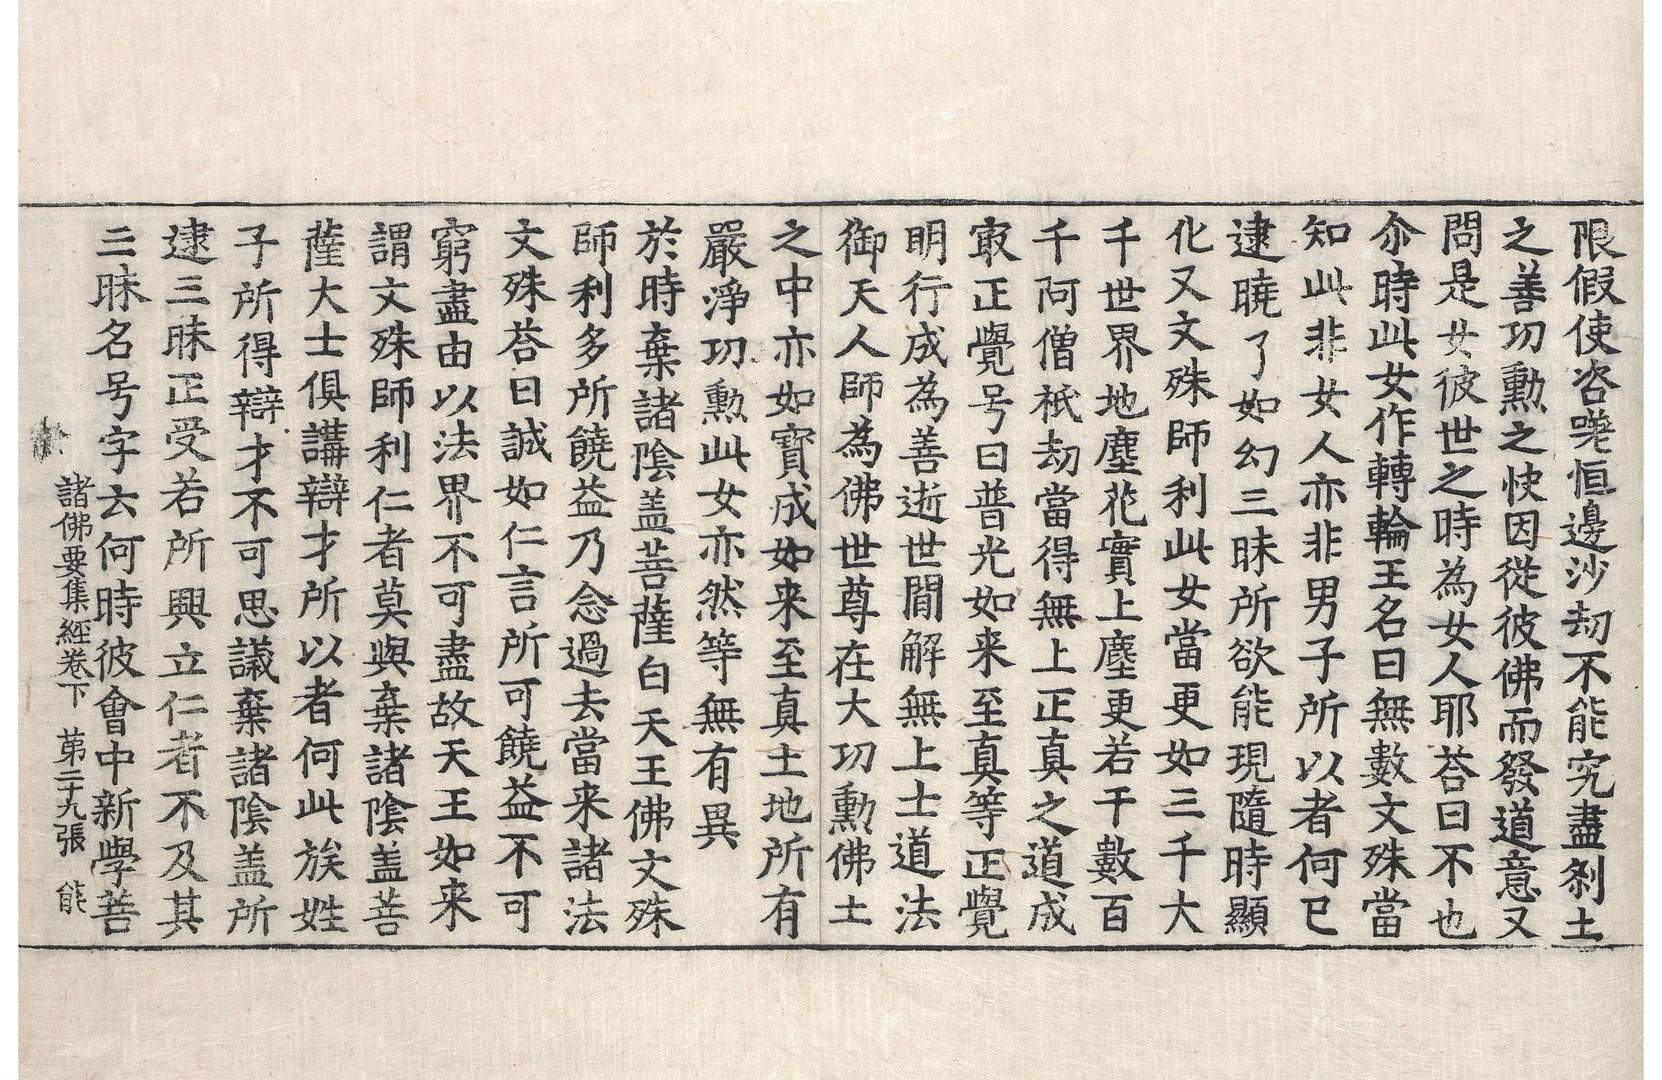 限假使咨嗟恒邊沙劫不能究盡刹土
之善功勳之快因從彼佛而發道意又
問是女彼世之時為女人耶荅曰不也
尒時此女作轉輪王名曰無數文殊當
知此非女人亦非男子所以者何已
逮曉了如幻三昧所欲能現隨時顯
化又文殊師利此女當更如三千大
千世界地塵花實上塵更若干數百
千阿僧祇劫當得無上正真之道成
㝡正覺号曰普光如来至真等正覺
明行成為善逝世閒解無上士道法
御天人師為佛世尊在大功勳佛土
之中亦如寶成如来至真土地所有
嚴淨功勳此女亦然等無有異
於時棄諸陰盖菩薩白天王佛文殊
師利多所饒益乃念過去當来諸法
文殊荅曰誠如仁言所可饒益不可
窮盡由以法界不可盡故天王如来
謂文殊師利仁者莫與棄諸陰盖菩
薩大士俱講辯才所以者何此族姓
子所得辯才不可思議棄諸陰盖所
逮三昧正受若所興立仁者不及其
三昧名号字去何時彼會中新學菩
諸佛要集經卷下　苐二十九張　能